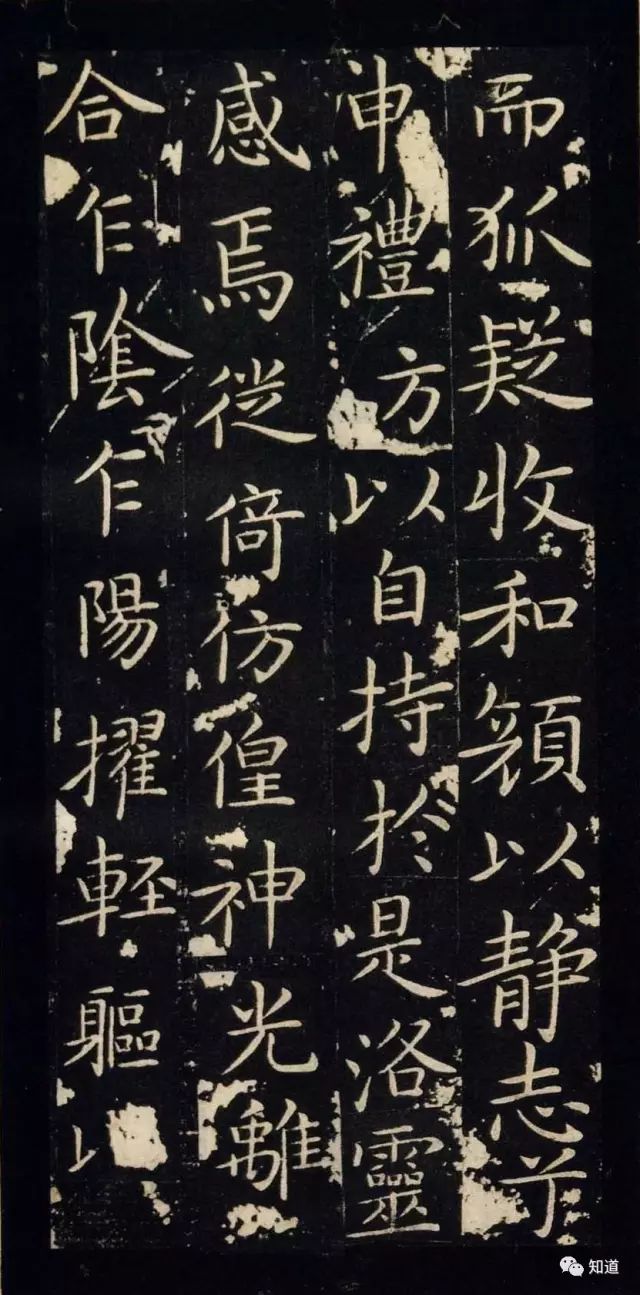 而狐疑收和顏以静志兮
申禮方以自持於是洛靈
感焉徙倚彷偟神光離
合乍陰乍陽擢輕軀以
知道